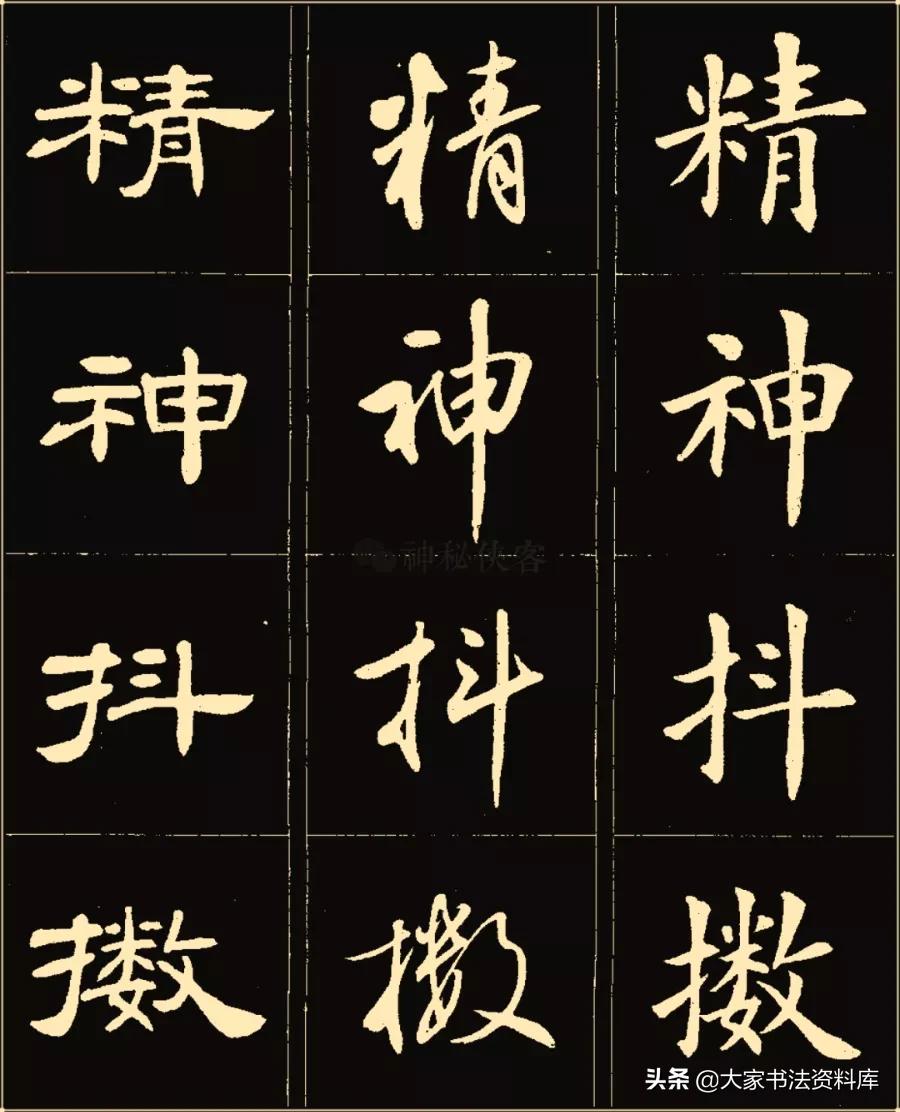 精 精 精
神 神 神
神秘侠客
抖 抖 抖
擞 擞 擞
头条 @大家书法资料库